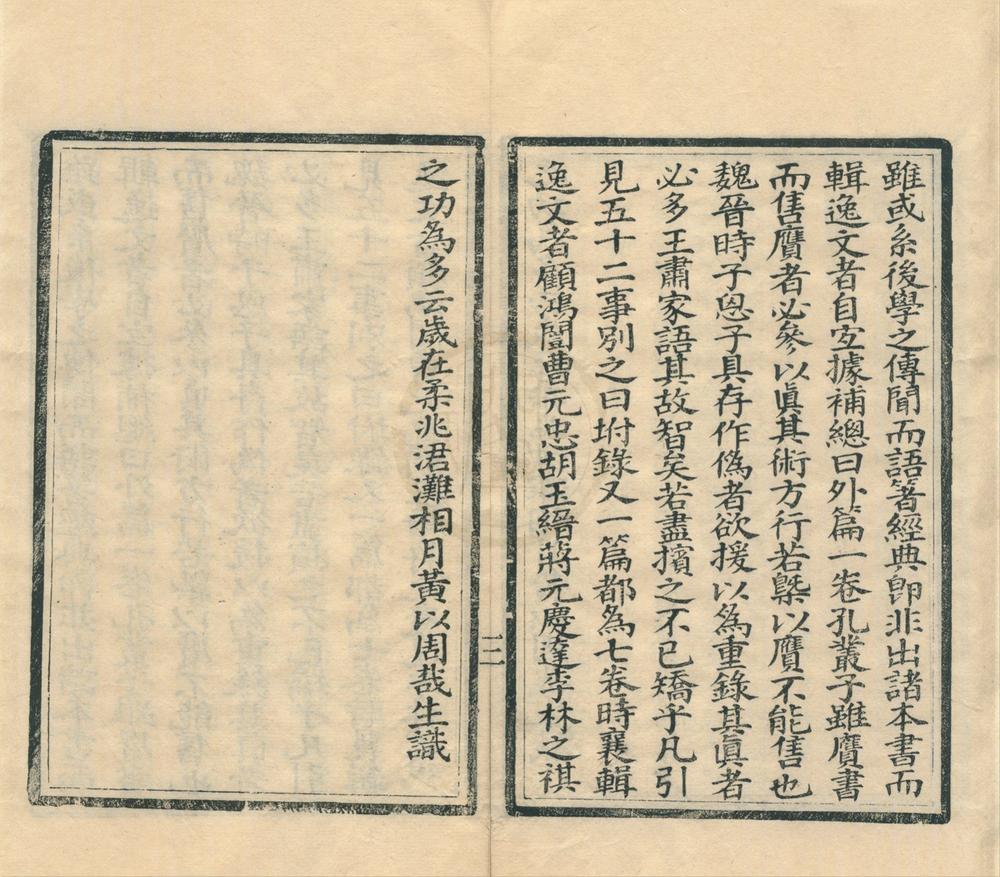 雖或系後學之傳聞而語箸經典卽非出諸本書而
輯逸文者自宐據補總曰外篇一卷孔叢子雖贗書
而售贗者必參以眞其術方行若槩以贗不能售也
魏晉時子思子具存作僞者欲援以爲重錄其眞者
必多王肅家語其故智矣若盡擯之不已矯乎凡引
見五十二事別之曰坿錄又一篇都爲七卷時襄輯
逸文者顧鴻闓曹元忠胡玉縉蔣元慶達李林之祺
之功爲多云歲在柔兆涒灘相月黃以周哉生識
二